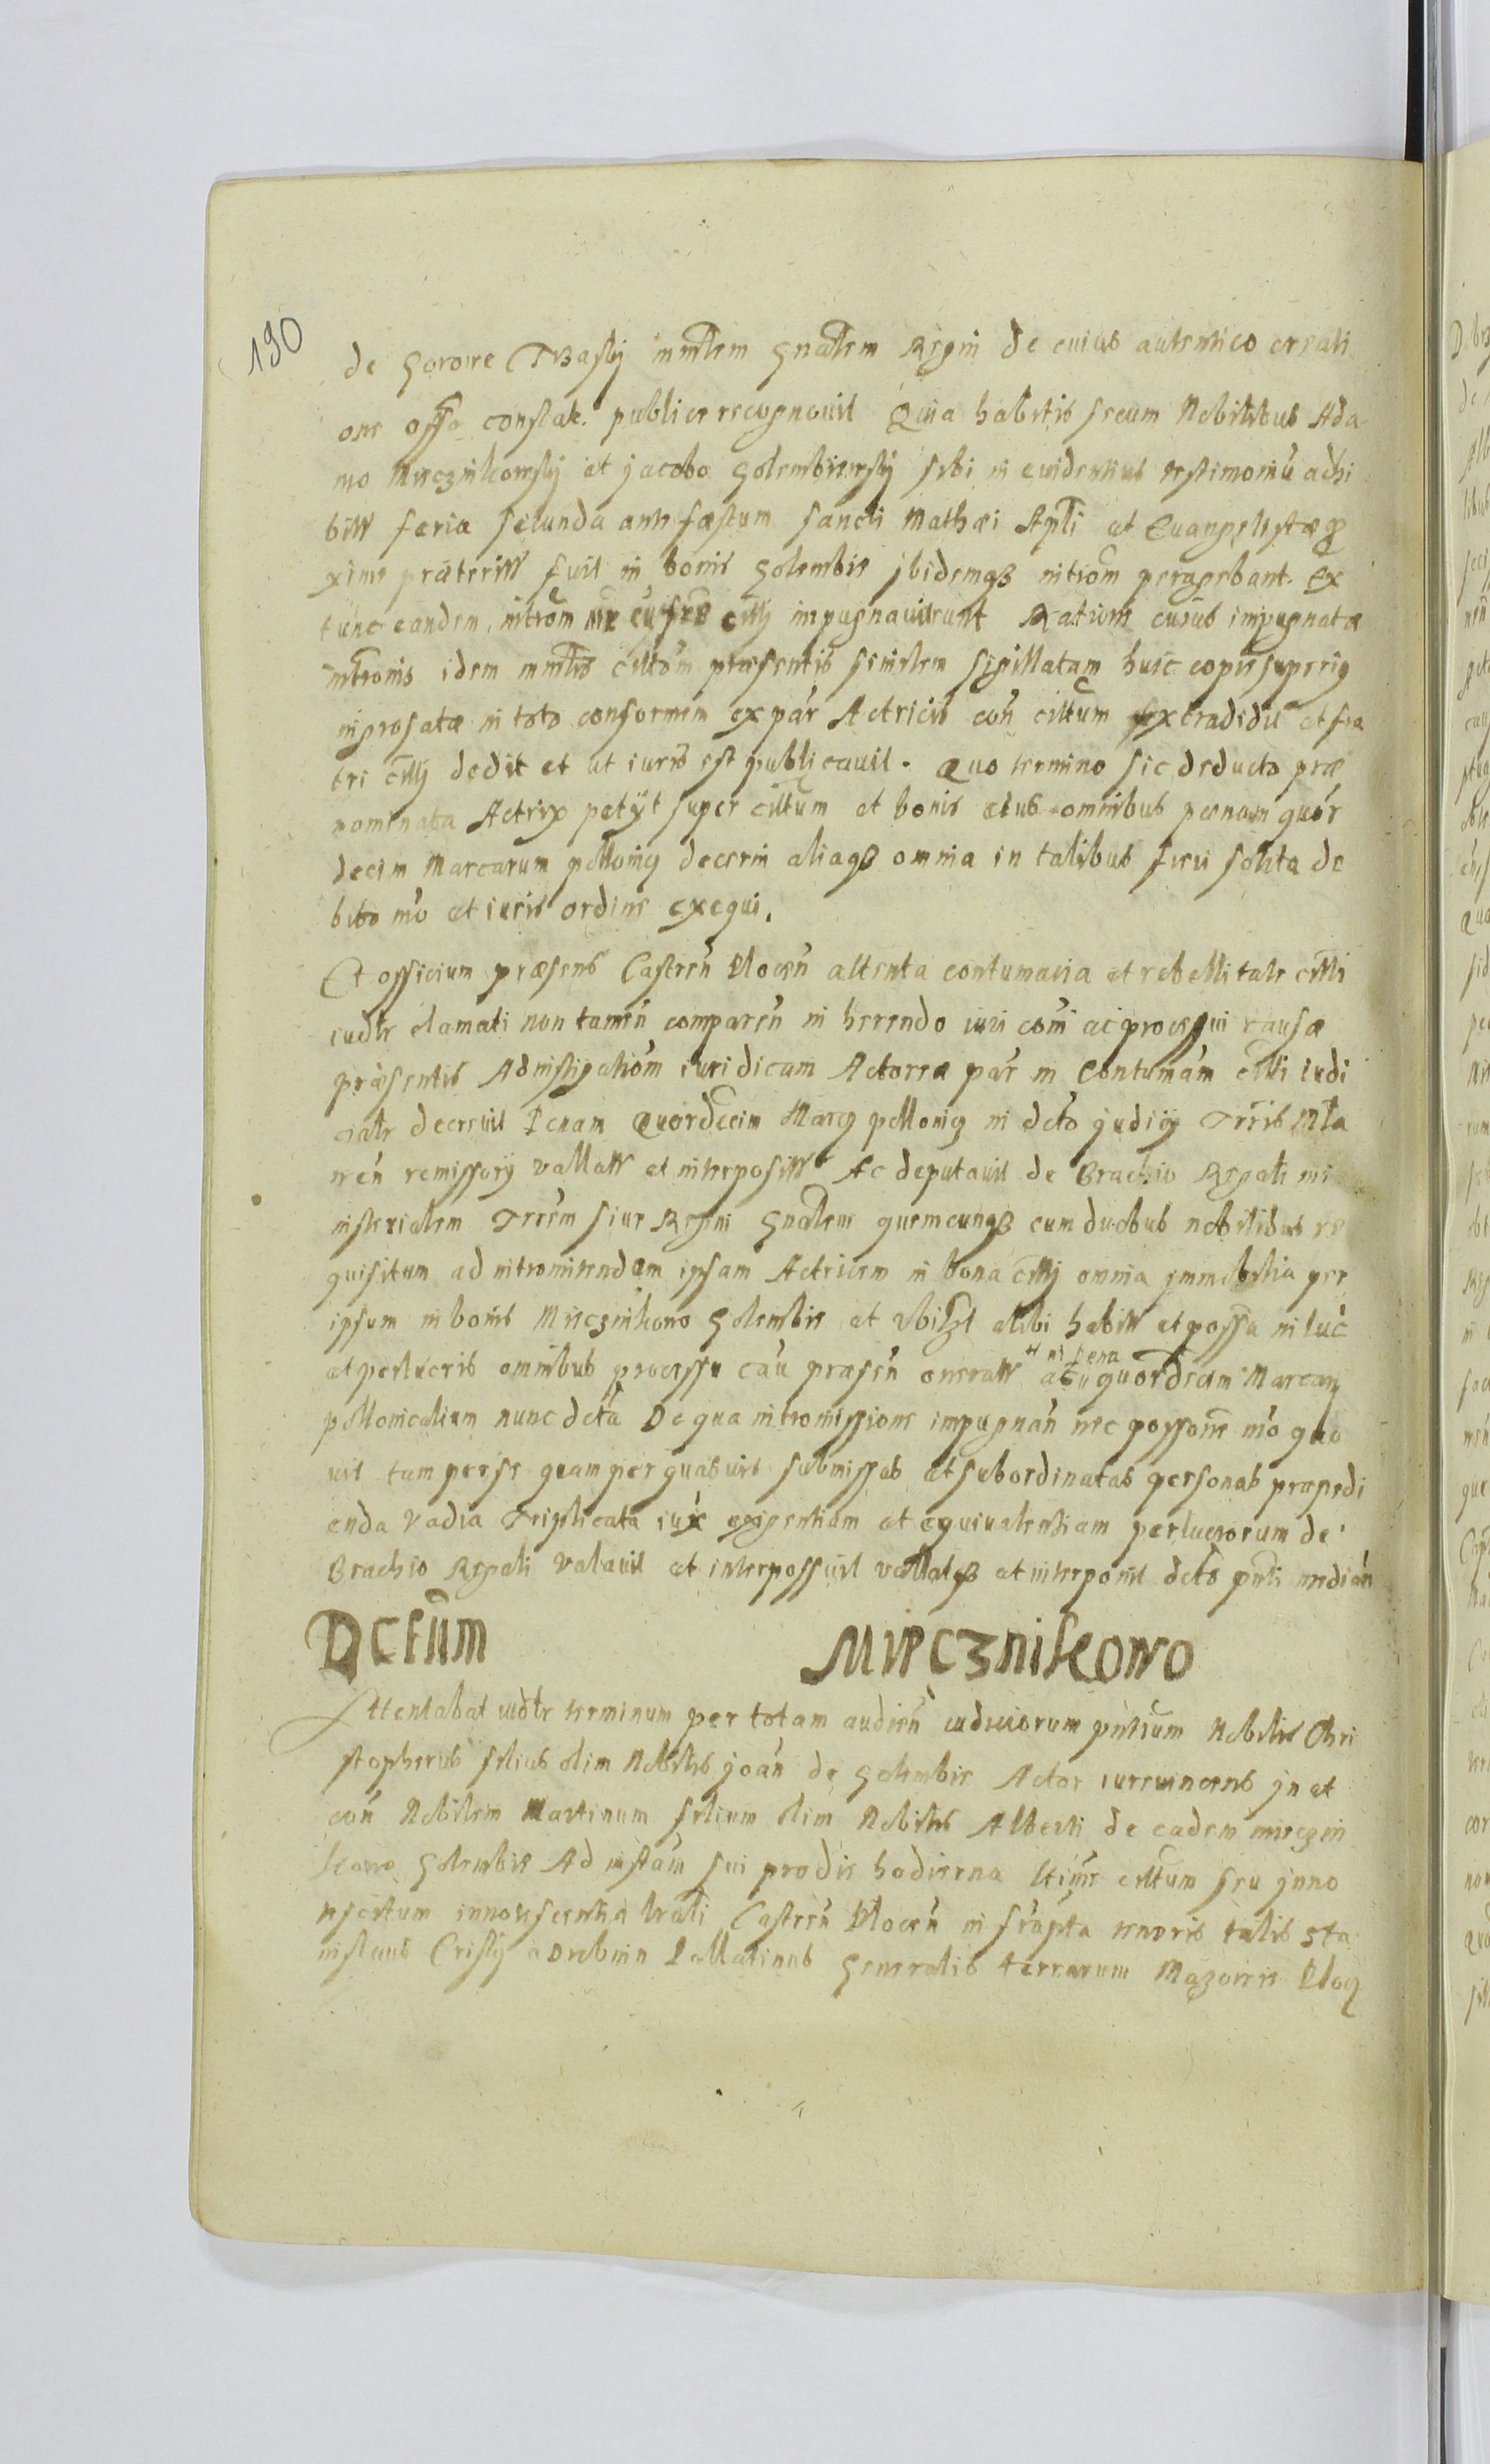 190
de Gorowe TBasky mnlem Gnalem Regni de cuius autentico creati
one offo constat. publice recognouit Quia habitis secum Nobilibus Ada
mo Mieczinkowsky et jacobo Golembiewsky sibi in euidentius testimoniu adhi
bitt feria secunda ante fæstum sancti Mathæi Apli et Euangelistæ
xime præteritt fuit in bonis Golembie jbidemq intrōm peragebant. Ex
tunc eandem intrōm citti impugnauerunt Rationi cuius impugnatæ
intronis idem mnlis cittōm præsentis similem sigillatam huic copie superig
ingrosatæ in toto conformem ex par Actricis con cittum extradidit et fra
tri citti dedit et ut iuris est publicauit. Quo termino sic deducto præ
nominata Actrix petÿt super cittum et bonis eius omnibus pœnam quor
decim Marcarum pollonicq decerni aliaq omnia in talibus fieri solita de
bito mo et iuris ordine exequi.
Et officium præsens Castren Plocen attenta contumacia et rebellitate citti
iudtr clamati non tamen comparen in herendo iuri com ac processui causæ
præsentis Ad instigatiom iuridicam Actoreæ par in Contumam citti iudi
cialr decreuit Pœnam Quordecim Marcq pollonicq in deto judicy Trris Mla
wen remissory vallatt et interpositt Ac deputauit de Brachio Regali mi
nisterialem Trrem siue Regni Gnalem quemcunq cum duobus nobilibus re
quisitum ad intromittendum ipsam Actricem in bona citti omnia immobilia per
ipsum in bonis Mieczinkowo Golembie et vbilzt alibi habitt et possa in luc
et perlucris omnibus processu cau præsen oneratt ac quordecim Marcarq
in Pena
pollonicalium nunc deta De qua intromissione impugnan nec possone mo quo
uis tam per se quam per quasuis submissas et subordinatas personas præpedi
enda Vadia Triplicata iux exigentiam et equiualentiam perlucrorum de
Brachio Regali valauit et interpossuit vallatq et interponit deto pnti median
Dctum Mieczniskowo
Attentabat iudtr terminum per totam audien iudiciorum pntium Nobilis Chri
stopherus filius olim Nobilis joan de Golembie Actor iureuincens jn et
con Nobilem Martinum filium olim Nobilis Alberti de eadem mieczin
kowo Golembie Ad instam sui pro die hodierna cittum seu jnno
innotescentia Castren Plocen in scripta tenoris talis Sta
nislaus Crisky a Drobnin Pallatinus Generalis terrarum Mazovie Plocq